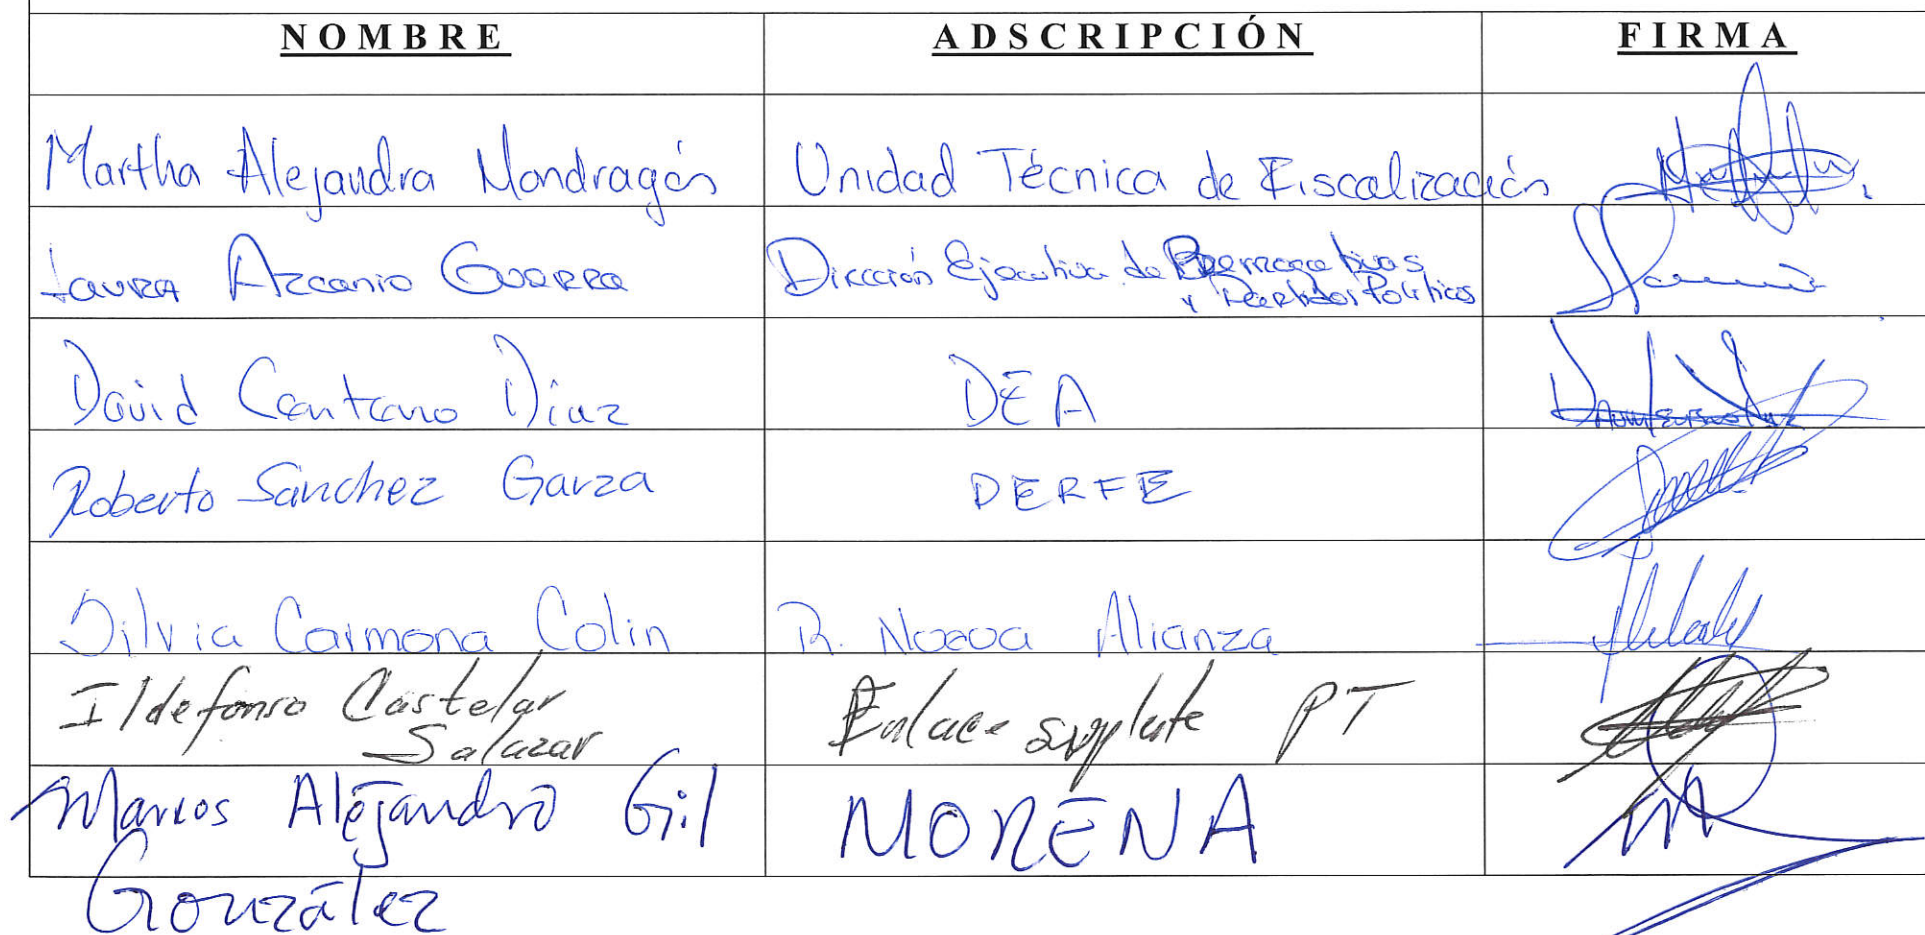 NOMBRE ADSCRIPCIÓN FIRMA
Martha Alejandra Mondragón Unidad Técnica de Fiscalización
Laura Azcanio Guerra Dirección Ejecutiva de Prerrogativas
y Partidos Políticos
David Centeno Díaz DEA
Roberto Sánchez Garza DERFE
Silvia Carmona Colin R. Nueva Alianza
Ildefonso Castelar Enlace suplente PT
Salazar
Marcos Alejandro Gil MORENA
González